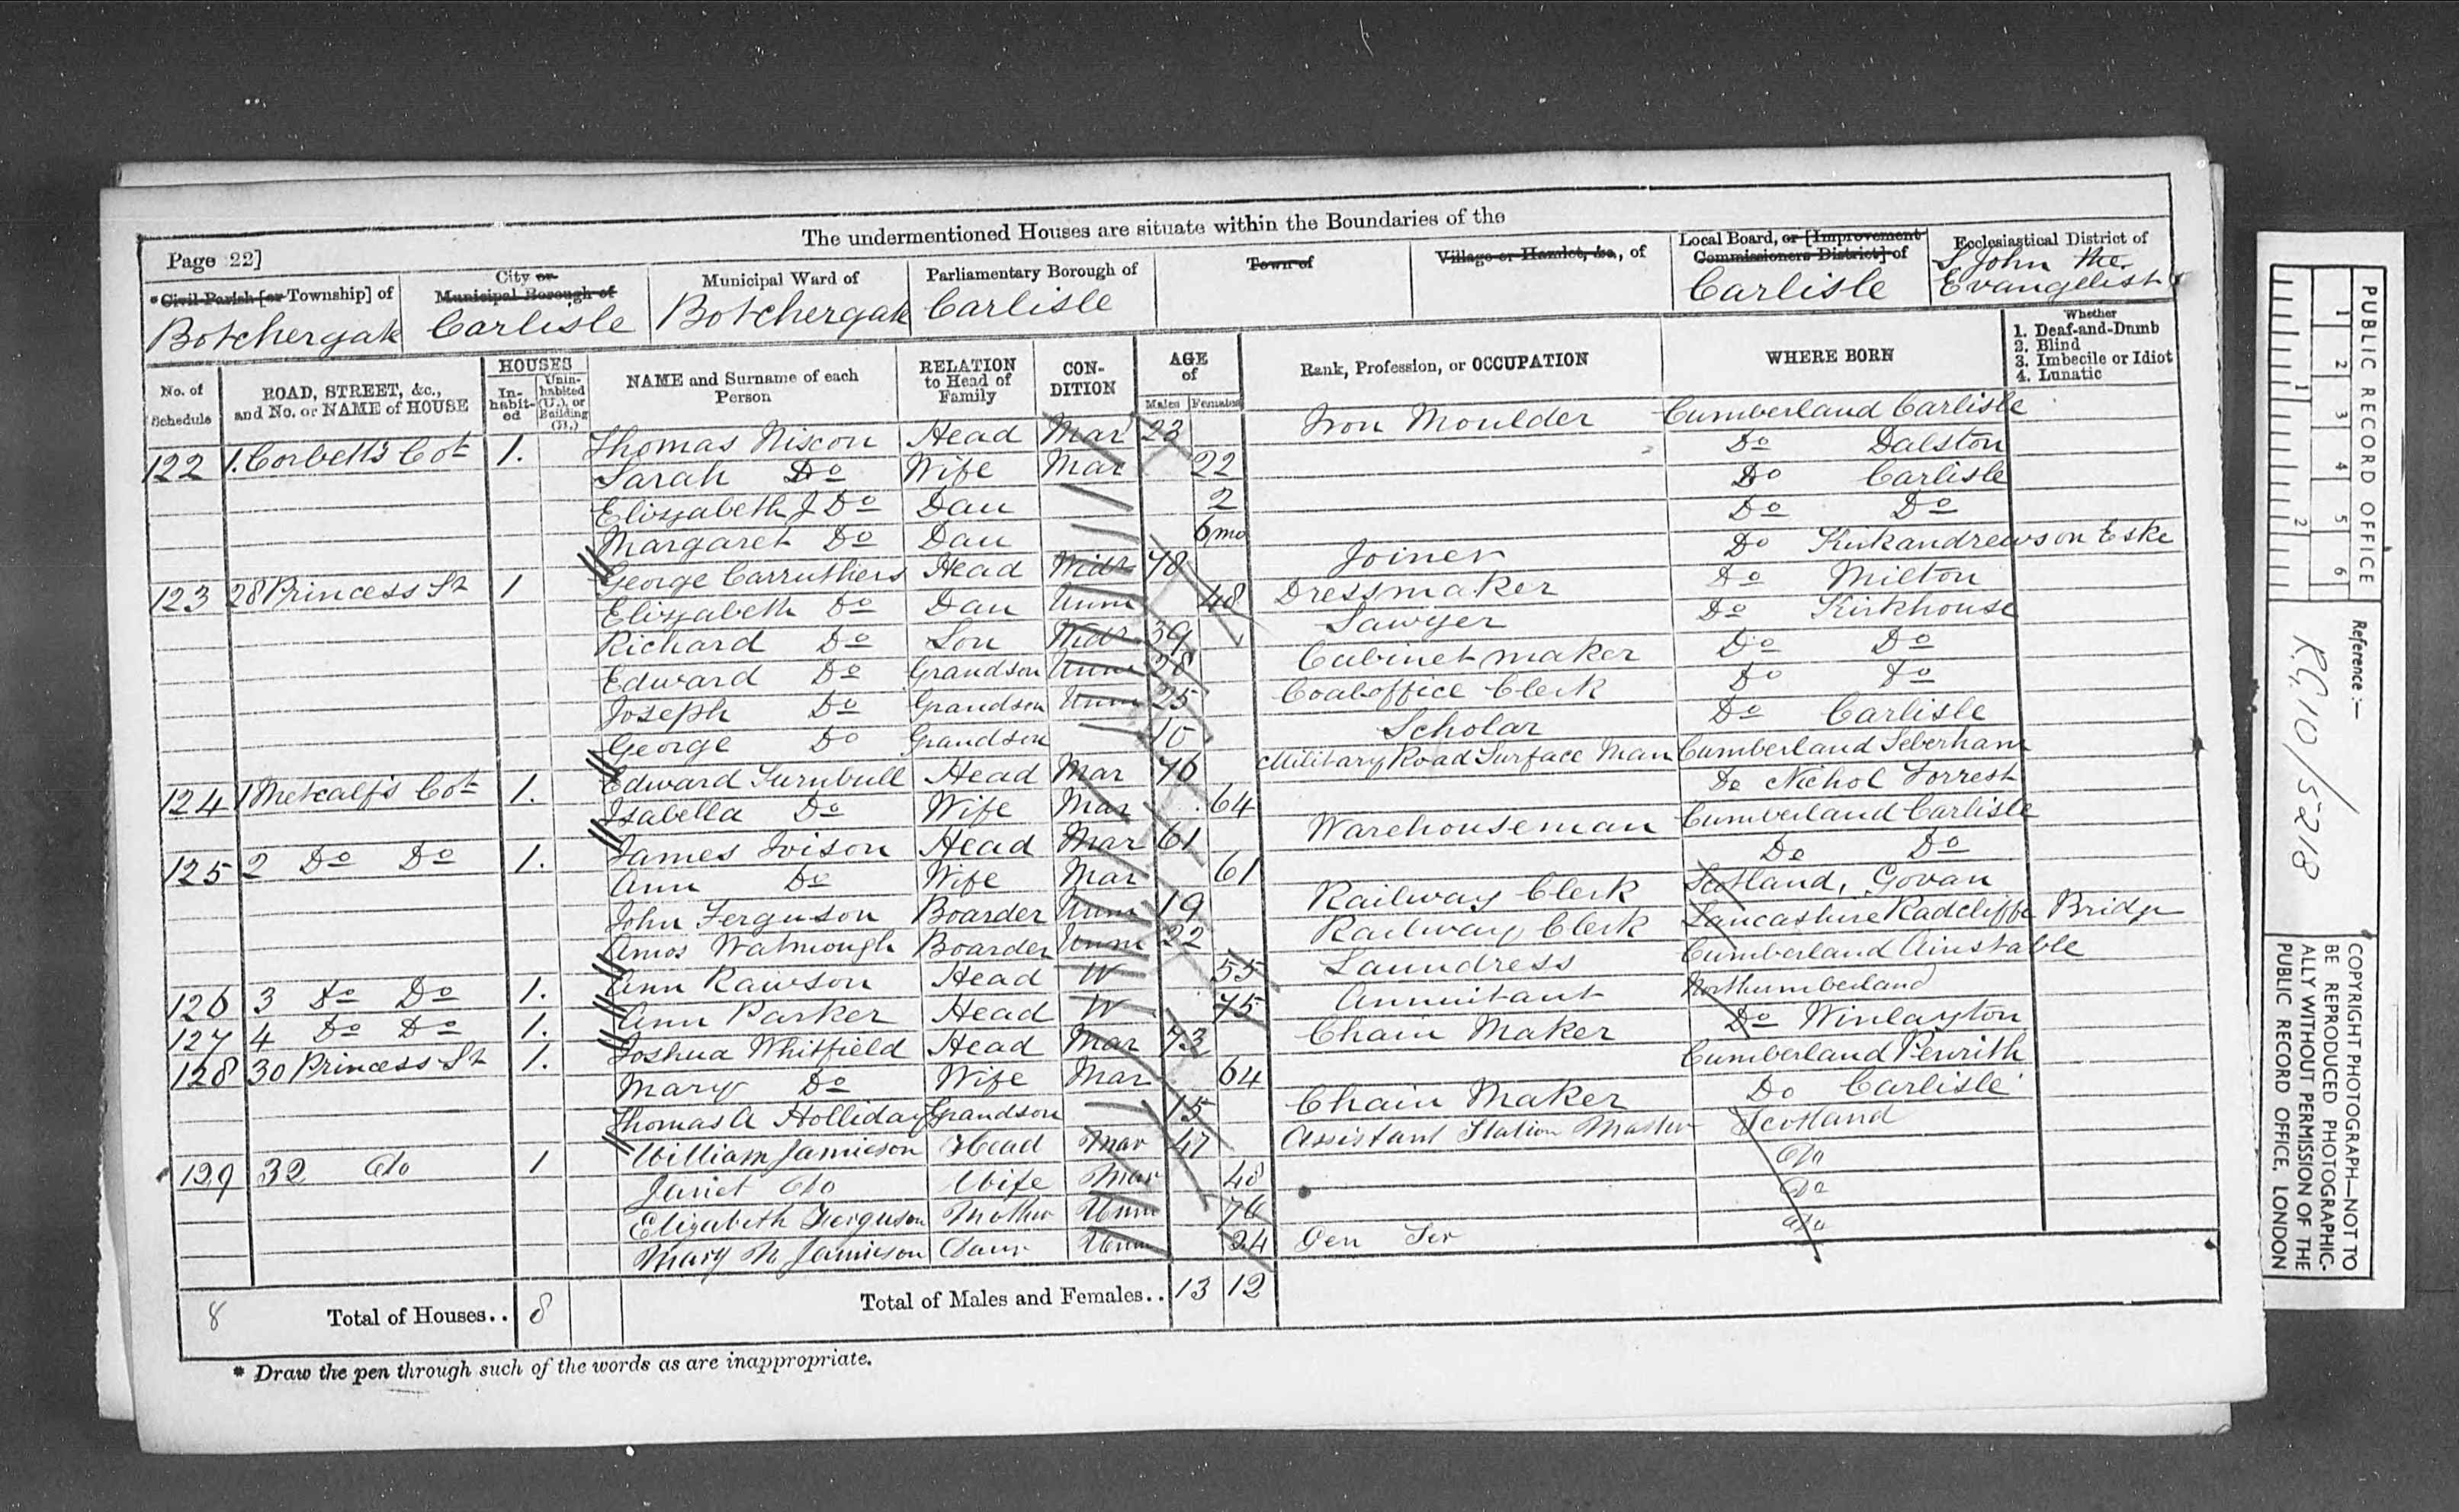 The undermentioned Houses are situate within the Boundaries of the
Page 22]
*Civil Parish [or Township] of
Botchergate
City or Municipal Borough of
Carlisle
Municipal Ward of
Botchergate
Parliamentary Borough of
Carlisle
Town of
Village or Hamlet, &c., of
Local Board, or [Improvement Commissioners District] of
Carlisle
Ecclesiastical District of
St John the
Evangelist
No. of Schedule
ROAD, STREET, &c., and No. or NAME of HOUSE
HOUSES
In-habit-ed
Unin-habited (U.), or Building (B.)
NAME and Surname of each Person
RELATION to Head of Family
CON-DITION
AGE of
Males Females
Rank, Profession, or OCCUPATION
WHERE BORN
Whether
1. Deaf-and-Dumb
2. Blind
3. Imbecile or Idiot
4. Lunatic
122 1. Corbetts Cot 1. Thomas Nixon Head Mar 23 Iron Moulder Cumberland Carlisle
Sarah Do Wife Mar 22 Do Dalston
Elizabeth J Do Dau 2 Do Carlisle
Margaret Do Dau 6 mo Do Do
123 28 Princess St 1 George Carruthers Head Widr 78 Joiner Do Kirkandrews on Eske
Elizabeth Do Dau Unm 48 Dressmaker Do Milton
Richard Do Son Widr 39 Sawyer Do Kirkhouse
Edward Do Grandson Unm 28 Cabinet maker Do Do
Joseph Do Grandson Unm 25 Coal office Clerk Do Do
George Do Grandson 10 Scholar Do Carlisle
124 1 Metcalfs Cot 1. Edward Turnbull Head Mar 76 Military Road Surface Man Cumberland Seberham
Isabella Do Wife Mar 64 Do Nichol Forrest
125 2 Do Do 1. James Ivison Head Mar 61 Warehouseman Cumberland Carlisle
Ann Do Wife Mar 61 Do Do
John Ferguson Boarder Unm 19 Railway Clerk Scotland, Govan
Amos Watmough Boarder Unm 22 Railway Clerk Lancashire Radcliffe Bridge
126 3 Do Do 1. Ann Rawson Head W 55 Laundress Cumberland Ainstable
127 4 Do Do 1. Ann Parker Head W 75 Annuitant Northumberland
128 30 Princess St 1. Joshua Whitfield Head Mar 73 Chain Maker Do Winlayton
Mary Do Wife Mar 64 Cumberland Penrith
Thomas A Holliday Grandson 15 Chain Maker Do Carlisle
129 32 do 1 William Jamieson Head Mar 47 Assistant Station Master Scotland
Janet do Wife Mar 48 do
Elizabeth Ferguson Mother Unm 76 Do
Mary N Jamieson Daur Unm 24 Gen Ser do
8 Total of Houses.. 8 Total of Males and Females.. 13 12
* Draw the pen through such of the words as are inappropriate.
PUBLIC RECORD OFFICE
1 2 3 4 5 6
1 2
Reference :—
R.G. 10 / 5218
COPYRIGHT PHOTOGRAPH—NOT TO
BE REPRODUCED PHOTOGRAPHIC-
ALLY WITHOUT PERMISSION OF THE
PUBLIC RECORD OFFICE, LONDON